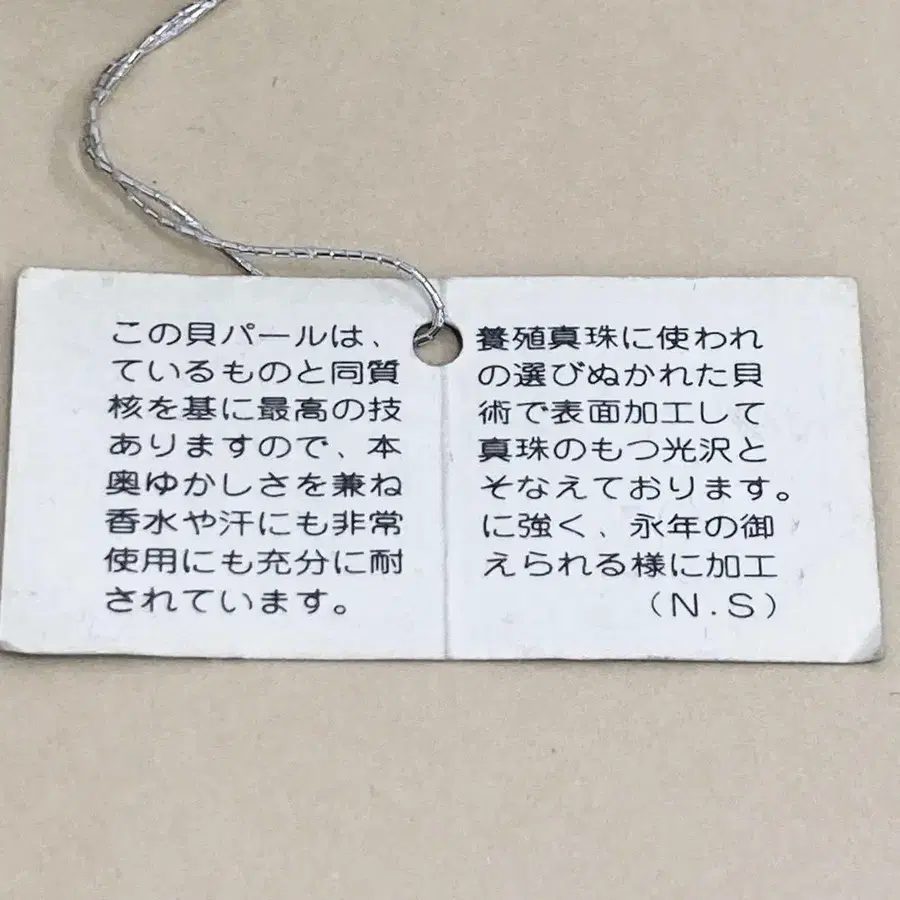 この貝パールは、養殖真珠に使われ
ているものと同質の選びぬかれた貝
核を基に最高の技術で表面加工して
ありますので、本真珠のもつ光沢と
奥ゆかしさを兼ねそなえております。
香水や汗にも非常に強く、永年の御
使用にも充分に耐えられる様に加工
されています。（N.S）